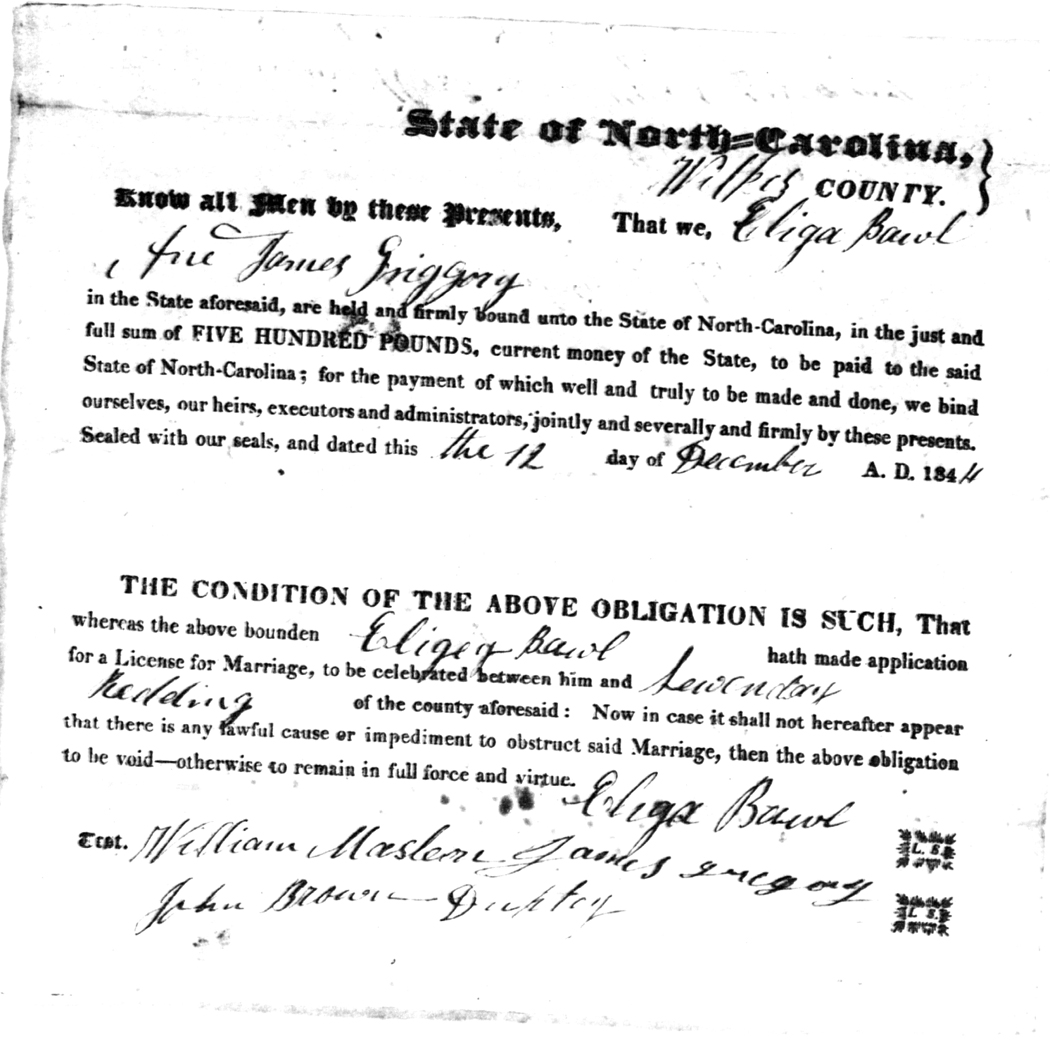 State of North-Carolina,
Wilkes COUNTY.
Know all Men by these Presents, That we, Eliga Bawl
James Griggory
in the State aforesaid, are held and firmly bound unto the State of North-Carolina, in the just and
full sum of FIVE HUNDRED POUNDS, current money of the State, to be paid to the said
State of North-Carolina; for the payment of which well and truly to be made and done, we bind
ourselves, our heirs, executors and administrators, jointly and severally and firmly by these presents.
Sealed with our seals, and dated this the 12 day of December A. D. 1844
THE CONDITION OF THE ABOVE OBLIGATION IS SUCH, That
whereas the above bounden Eligey Bawl hath made application
for a License for Marriage, to be celebrated between him and
Redding of the county aforesaid: Now in case it shall not hereafter appear
that there is any lawful cause or impediment to obstruct said Marriage, then the above obligation
to be void—otherwise to remain in full force and virtue.
Eliga Bawl
Test. William Masteen James gregory L. S.
John Brown L S.